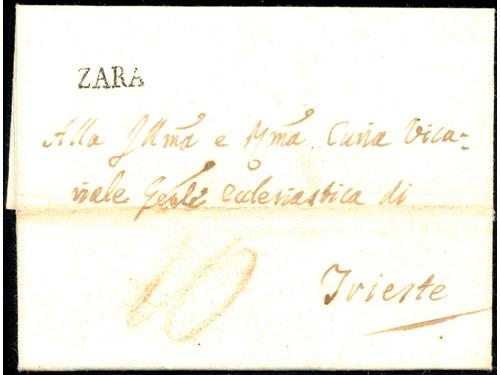 ZARA
Alla Illma e Rma Curia Vica-
riale Genle Eclesiastica di
10
Trieste